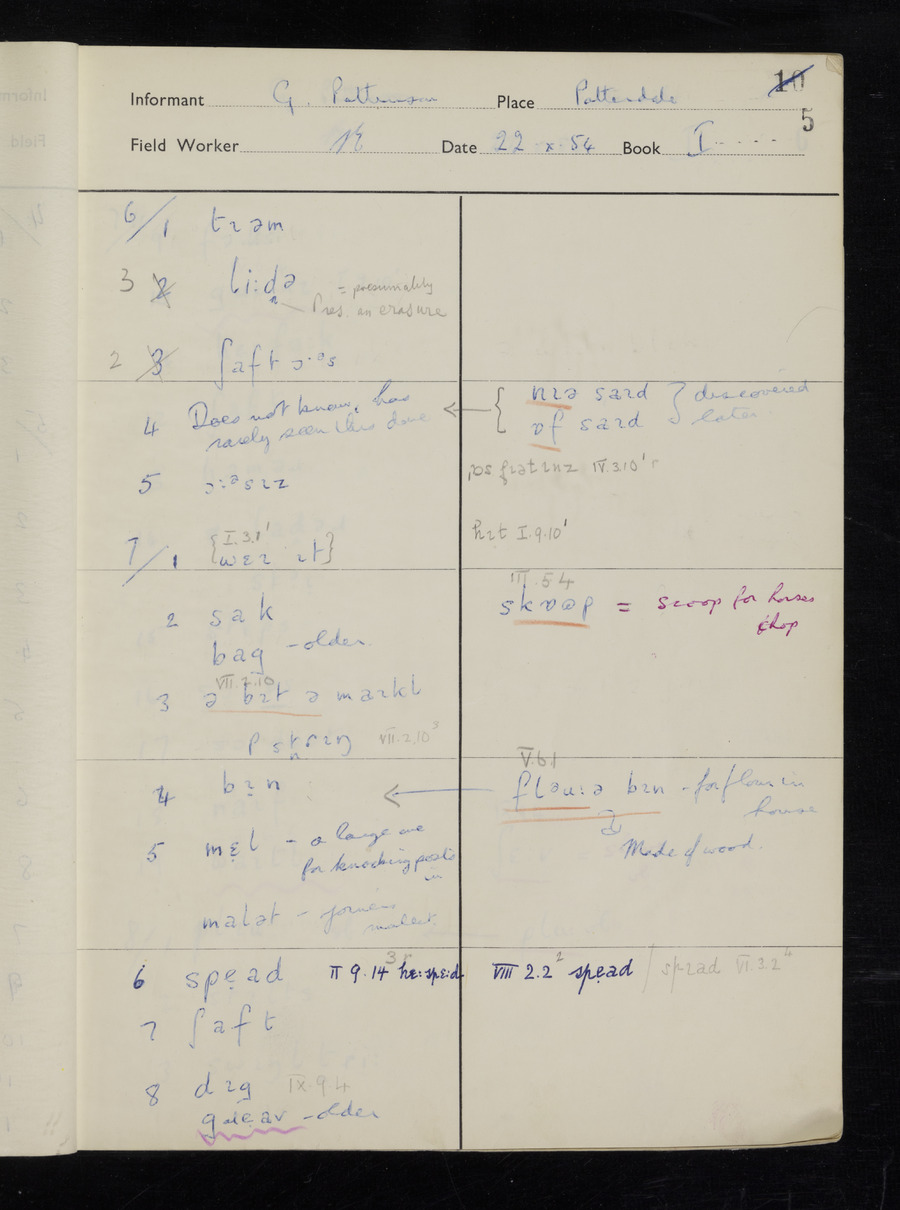 10
Informant G. Pattinson Place Patterdale
5
Field Worker Date 22 · x · 54 Book I
6/1 trəm
3 2 li:də = presumably
Pres. an erasure
2 3 ʃaft ɔ:ᵊs
4 Does not know, has
rarely seen this done
{ nɪə saɪd } discovered
ɒf saɪd later
5 ɔ:ᵊsɪz
IV.3.10¹
I.3.1¹
hɪt I.9.10¹
7/1 {wɛɪ ɪt}
III.5.4
2 sak
= scoop for horses
chop
bag – older
VII.7.10
3 ə bɪt ə maɪkl
VII.2.10³
V.6.1
4 bɪn
flaʊ:ə bɪn – for flour in
house
Made of wood.
5 mɛl – a large one
for knocking posts
in
malət – joiners
mallet
3r
6 spẹad II 9.14 VIII 2.2² spẹad / spɪad VI.3.2⁴
7 ʃaft
8 dɪg IX.9.4
– older